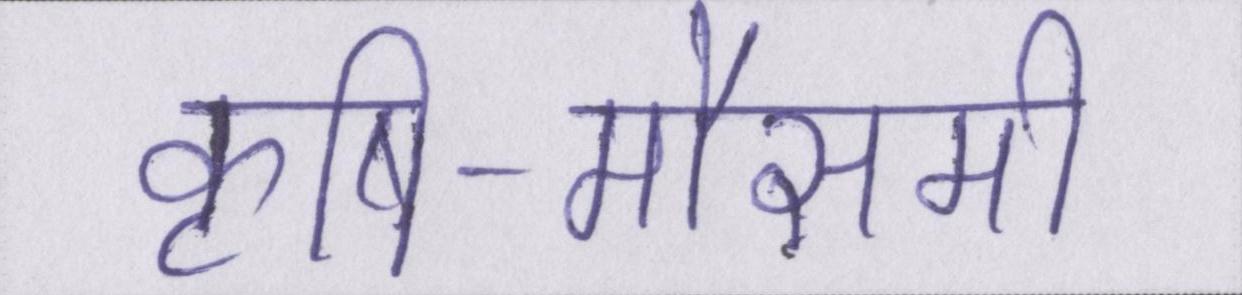 कृषि-मौसमी